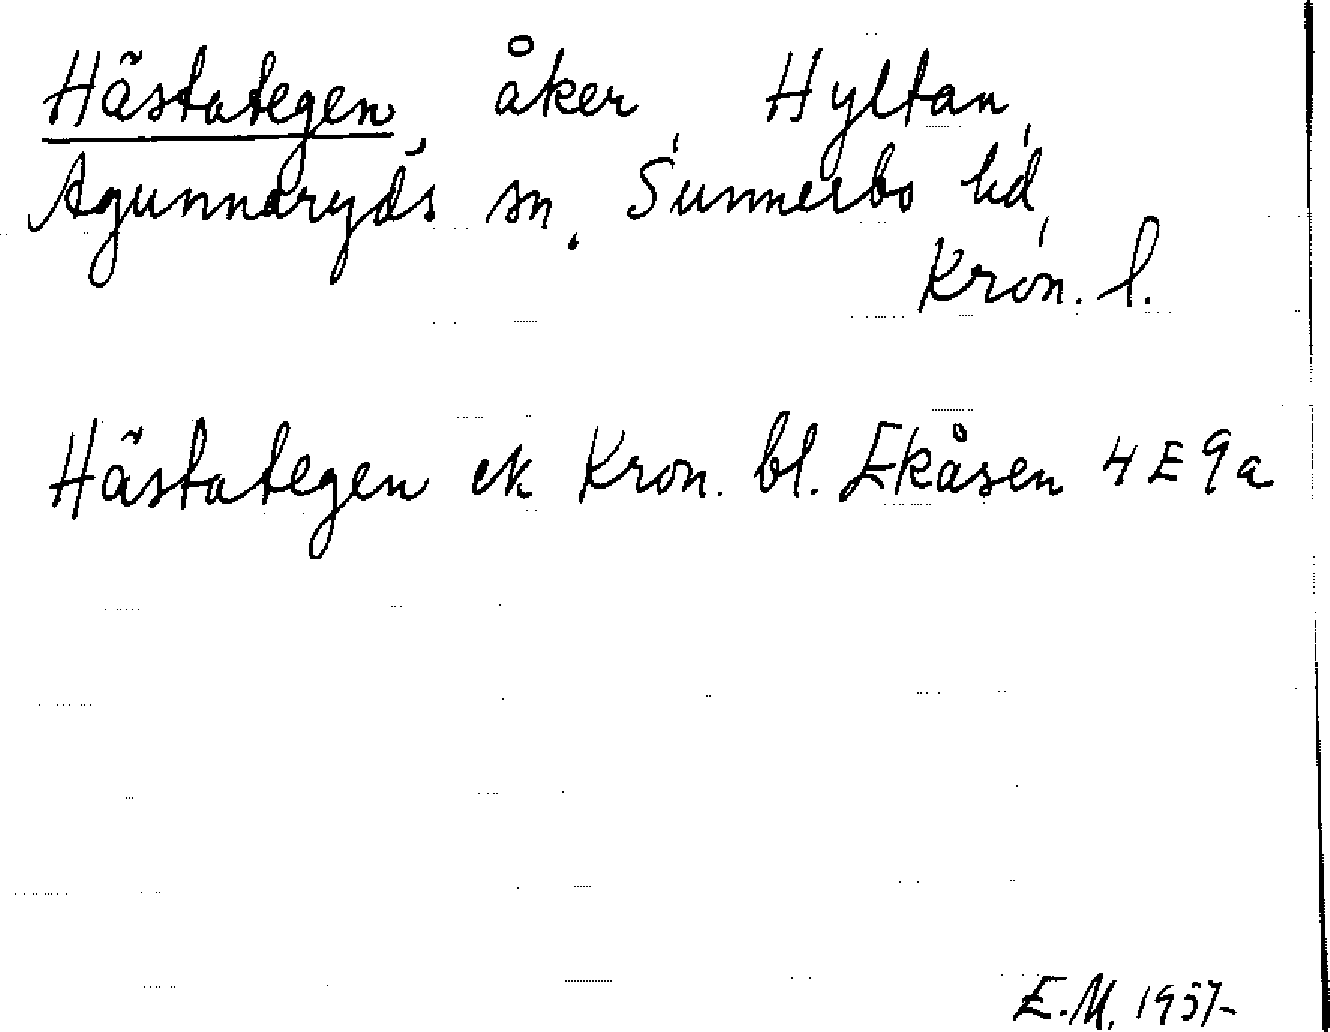 Hästategen, åker, Hyltan,
Agunnaryds sn, Sunnerbo hd,
Kron. l.
Hästategen ek Kron. bl. Ekåsen 4 E 9 a
E.M. 1957